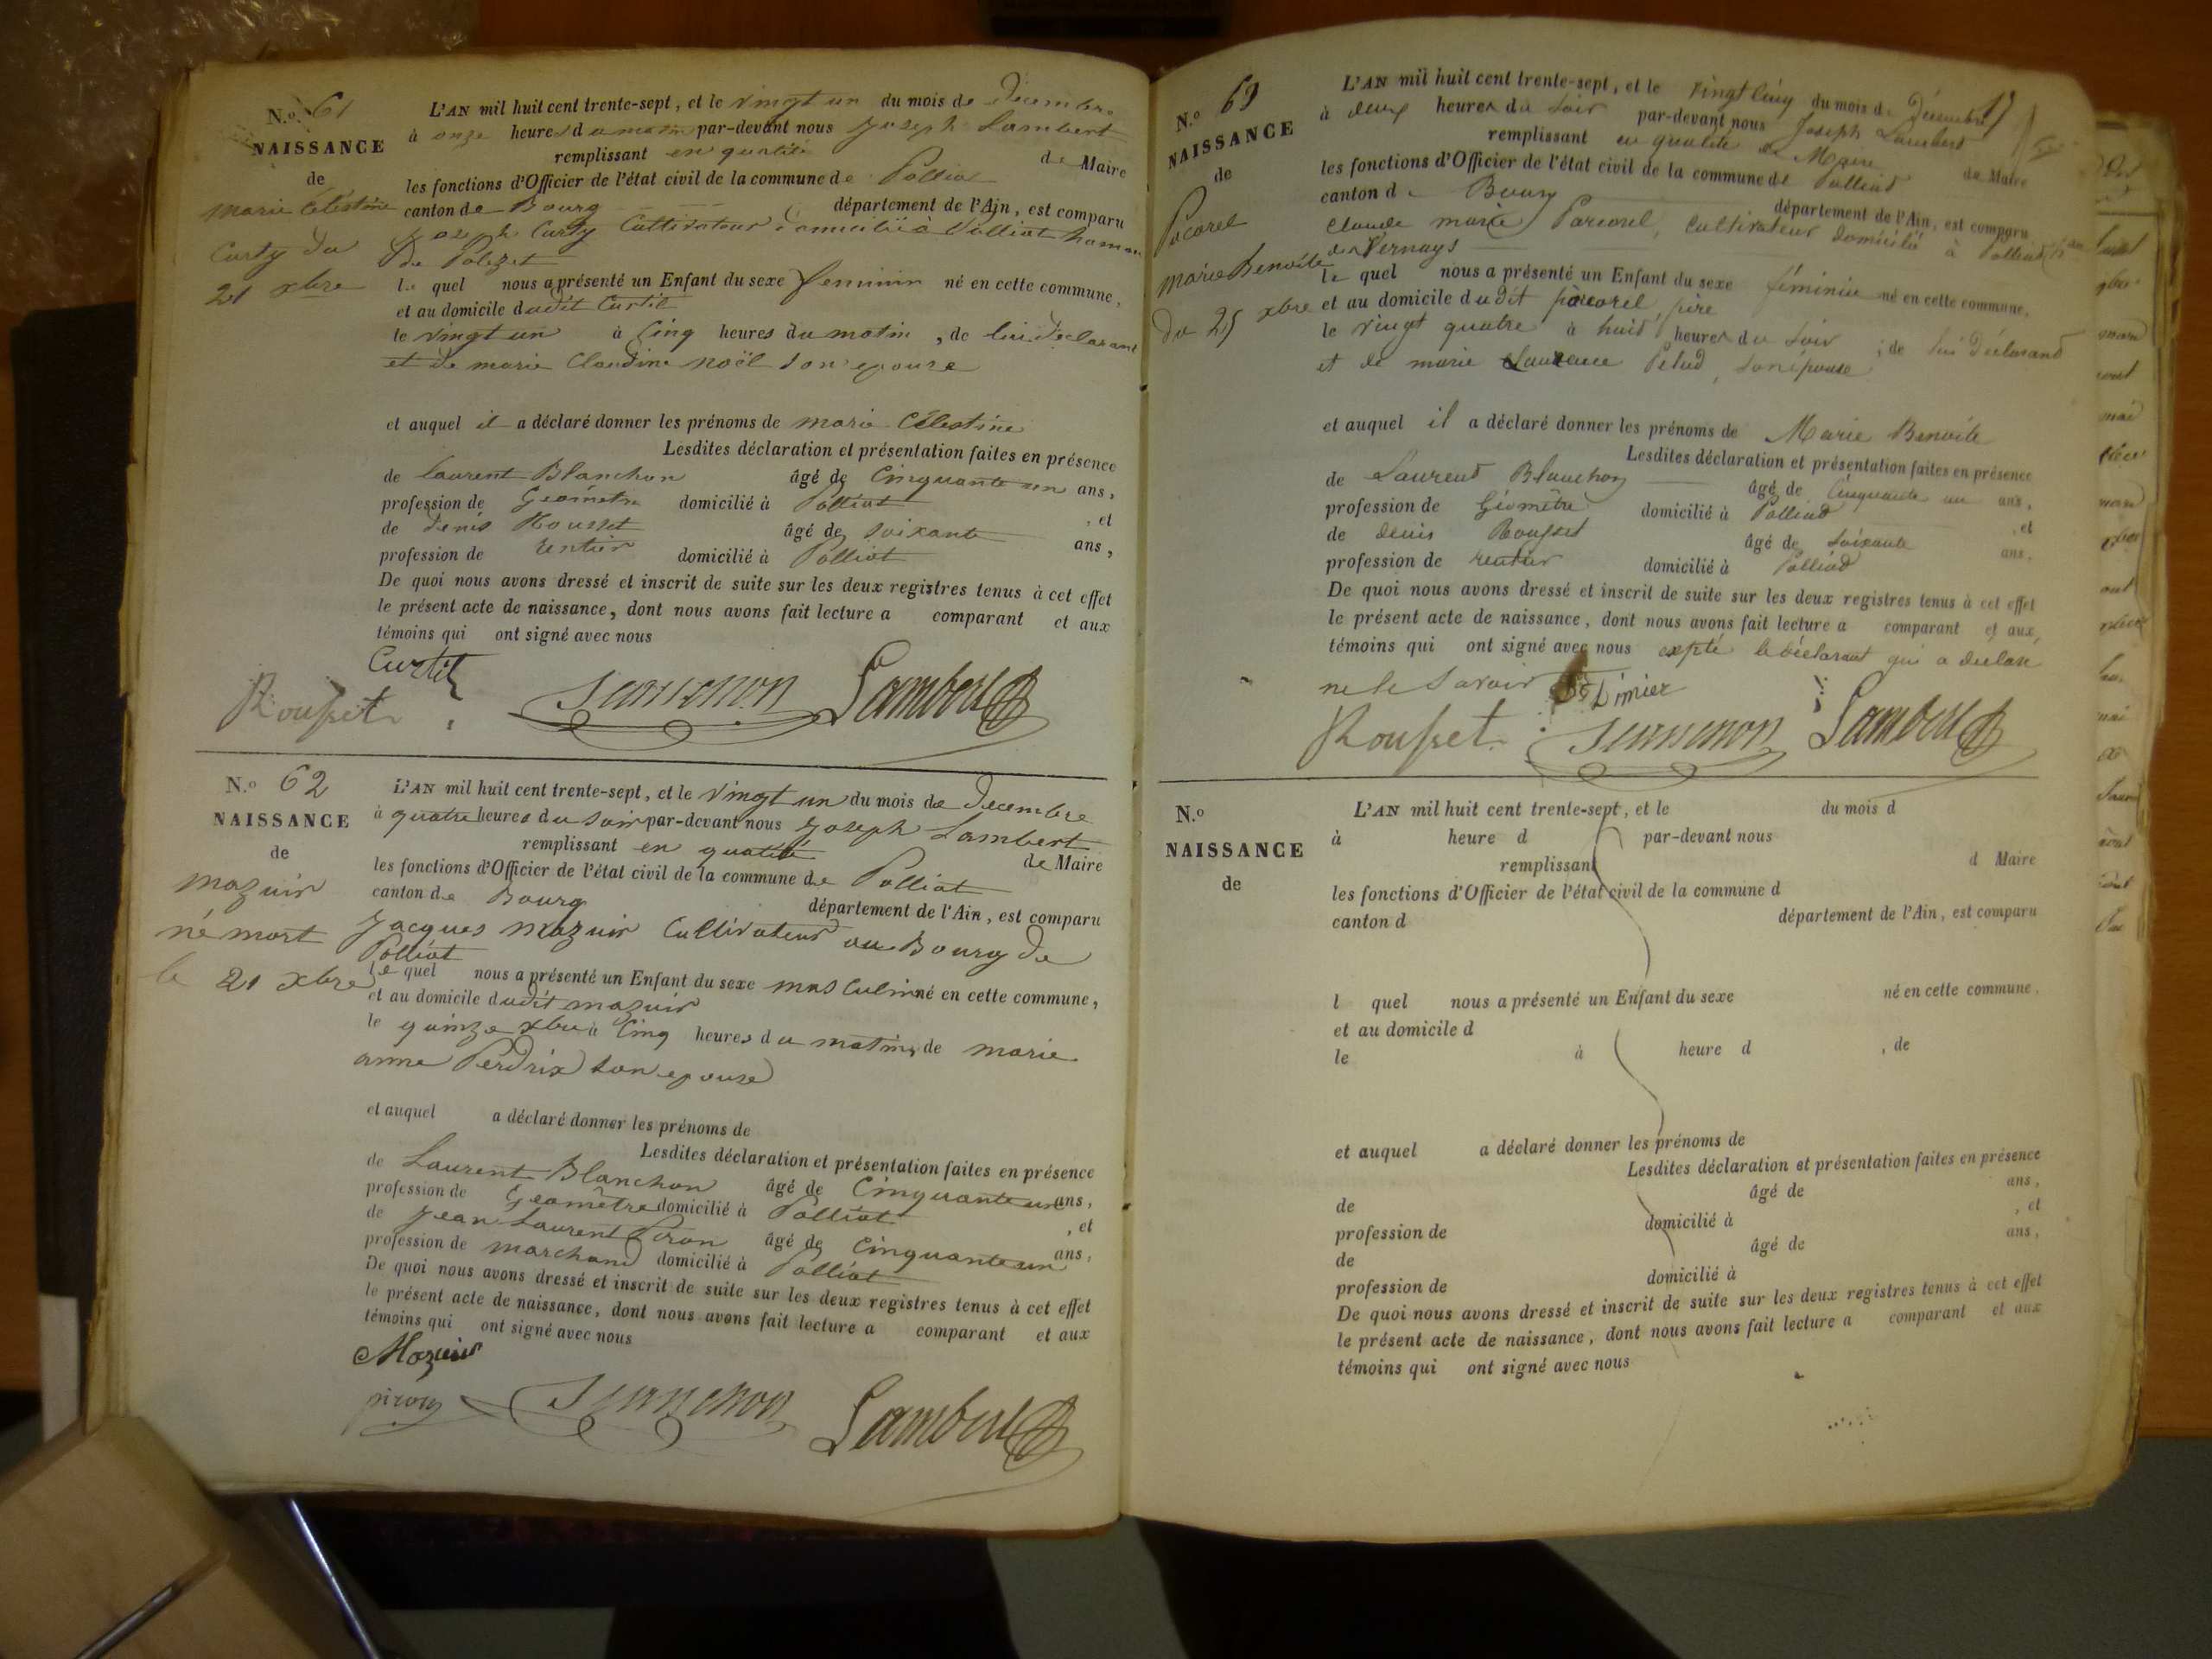 N.o 61
NAISSANCE
de
marie Célestine
Curty du
21 xbre
L'AN mil huit cent trente-sept, et le vingt un du mois de decembre
à onze heures du matin par-devant nous Joseph Lambert
remplissant en qualité de Maire
les fonctions d'Officier de l'état civil de la commune de Polliat
canton de Bourg département de l'Ain, est comparu
joseph Curty Cultivateur domicilié à Polliat hameau
de Polezet
le quel nous a présenté un Enfant du sexe feminin né en cette commune,
et au domicile dudit Curtil
le vingt un à Cinq heures du matin, de lui declarant
et de marie Claudine noël son epouse
et auquel il a déclaré donner les prénoms de marie Célestine
Lesdites déclaration et présentation faites en présence
de laurent Blanchon âgé de Cinquante un ans,
profession de Geomètre domicilié à Polliat, et
de denis Rousset âgé de soixante ans,
profession de rentier domicilié à Polliat
De quoi nous avons dressé et inscrit de suite sur les deux registres tenus à cet effet
le présent acte de naissance, dont nous avons fait lecture a comparant et aux
témoins qui ont signé avec nous
Curtil
Rousset Lambert
N.o 62
NAISSANCE
de
mazuir
né mort
le 21 xbre
L'AN mil huit cent trente-sept, et le vingt un du mois de decembre
à quatre heures du soir par-devant nous joseph Lambert
remplissant en qualité de Maire
les fonctions d'Officier de l'état civil de la commune de Polliat
canton de Bourg département de l'Ain, est comparu
jacques mazuir Cultivateur au Bourg de
Polliat
le quel nous a présenté un Enfant du sexe masculin né en cette commune,
et au domicile dudit mazuir
le quinze xbre à Cinq heures du matin, de marie
anne Perdrix son epouse
et auquel a déclaré donner les prénoms de
Lesdites déclaration et présentation faites en présence
de Laurent Blanchon âgé de Cinquante un ans,
profession de Geomètre domicilié à Polliat, et
de jean Laurent Piron âgé de Cinquante un ans,
profession de marchand domicilié à Polliat
De quoi nous avons dressé et inscrit de suite sur les deux registres tenus à cet effet
le présent acte de naissance, dont nous avons fait lecture a comparant et aux
témoins qui ont signé avec nous
Mazuir
piron Lambert
N.o 63
NAISSANCE
de
Pocorel
marie Benoîte
du 25 xbre
L'AN mil huit cent trente-sept, et le vingt cinq du mois de décembre
à deux heures du soir par-devant nous Joseph Lambert
remplissant en qualité de Maire de Maire
les fonctions d'Officier de l'état civil de la commune de Polliat
canton de Bourg département de l'Ain, est comparu
Claude marie Pocorel, cultivateur domicilié à Polliat
des Vernays
le quel nous a présenté un Enfant du sexe féminin né en cette commune,
et au domicile dudit pocorel, père
le vingt quatre à huit heures du soir, de lui déclarant
et de marie Laurence Pelud, son épouse
et auquel il a déclaré donner les prénoms de Marie Benoite
Lesdites déclaration et présentation faites en présence
de Laurent Blanchon âgé de Cinquante un ans,
profession de Géomètre domicilié à Polliat, et
de denis Rousset âgé de soixante ans,
profession de rentier domicilié à Polliat
De quoi nous avons dressé et inscrit de suite sur les deux registres tenus à cet effet
le présent acte de naissance, dont nous avons fait lecture a comparant et aux
témoins qui ont signé avec nous expté le déclarant qui a déclaré
ne le savoir
Rousset Lambert
N.o
NAISSANCE
de
L'AN mil huit cent trente-sept, et le du mois d
à heure d par-devant nous
remplissant d Maire
les fonctions d'Officier de l'état civil de la commune d
canton d département de l'Ain, est comparu
l quel nous a présenté un Enfant du sexe né en cette commune,
et au domicile d
le à heure d , de
et auquel a déclaré donner les prénoms de
Lesdites déclaration et présentation faites en présence
de âgé de ans,
profession de domicilié à , et
de âgé de ans,
profession de domicilié à
De quoi nous avons dressé et inscrit de suite sur les deux registres tenus à cet effet
le présent acte de naissance, dont nous avons fait lecture a comparant et aux
témoins qui ont signé avec nous